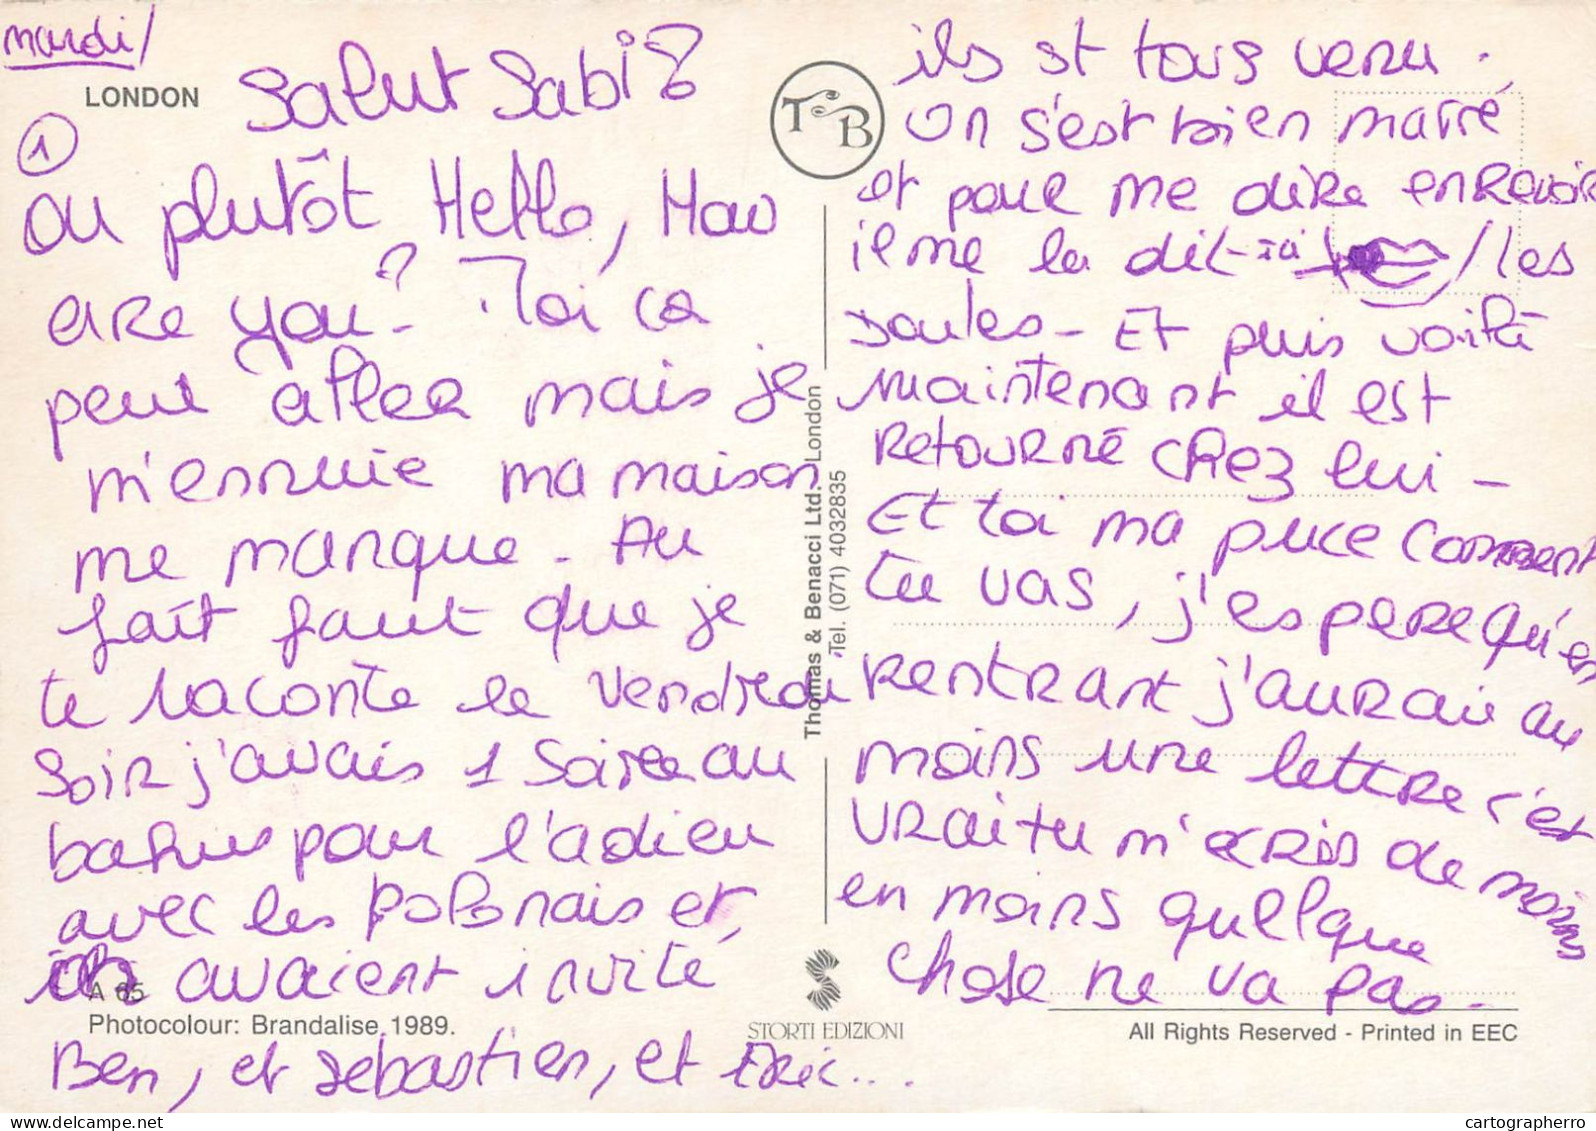 mardi/
LONDON
Salut Sabi
1
ou plutôt Hello, How
are you? Toi ca
peut aller mais je
m'ennuie ma maison
me manque - Au
fait faut que je
te raconte le Vendredi
Soir j'avais 1 Soiree au
bahus pour l'adieu
avec les polonais et,
avaient invité
Ben, et sebastien, et Eric...
A 65
Photocolour: Brandalise, 1989.
T&B
Thomas & Benacci Ltd. London
Tel. (071) 4032835
STORTI EDIZIONI
ils st tous venu.
On s'est bien marré
et pour me dire enrevoir
il me la dit
/les
joules - Et puis voilà
maintenant il est
retourné chez lui -
Et toi ma puce comment
tu vas, j'espere qu'en
rentrant j'aurais au
moins une lettre c'est
vrai tu m'ecris de moins
en moins quellque
chose ne va pas -
All Rights Reserved - Printed in EEC
cartographerro